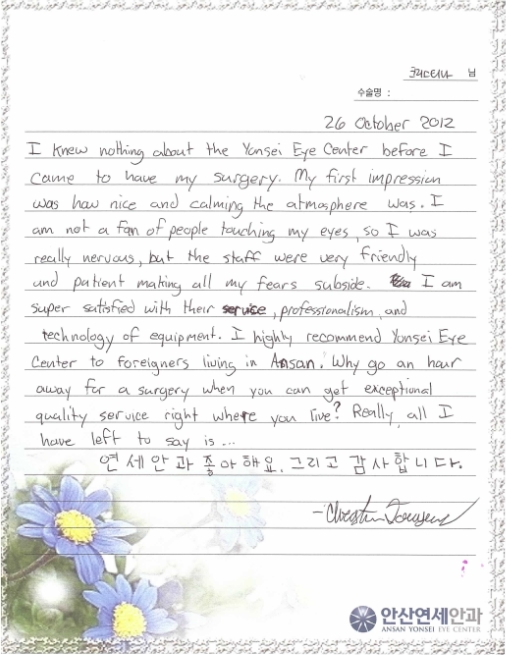 크리스티나 님
수술명 :
26 October 2012
I knew nothing about the Yonsei Eye Center before I
came to have my surgery. My first impression
was how nice and calming the atmosphere was. I
am not a fan of people touching my eyes, so I was
really nervous, but the staff were very friendly
and patient making all my fears subside. I am
super satisfied with their service, professionalism, and
technology of equipment. I highly recommend Yonsei Eye
Center to foreigners living in Ansan. Why go an hour
away for a surgery when you can get exceptional
quality service right where you live? Really, all I
have left to say is...
연세안과 좋아해요. 그리고 감사합니다.
안산연세안과
ANSAN YONSEI EYE CENTER